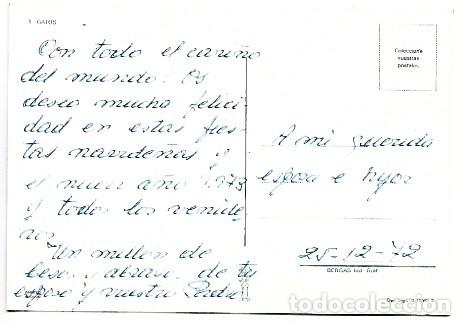 GATOS
Con todo el cariño
del mundo. Os
deseo mucha felici
dad en estas fies-
tas navideñas y
el nuevo año 1.973
y todos los venide
ros
Un millon de
besos y abrazos de tu
esposo y vuestro Padre
Coleccione
nuestras
postales
A mi querida
esposa e hijos
25-12-72
BERGAS Ind. Graf
todocoleccion.net